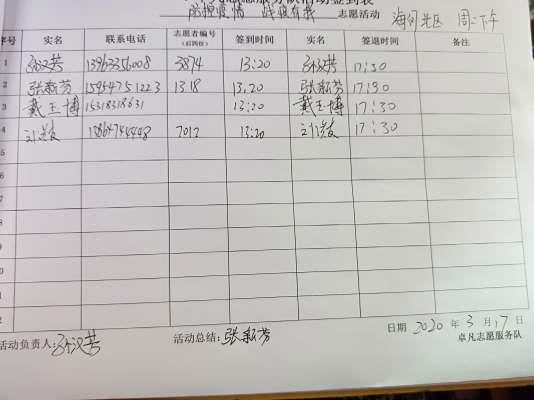 防控疫情 战疫有我 志愿活动 海河光区 周二下午
序号 实名 联系电话 志愿者编号 签到时间 实名 签退时间 备注
(后四位)
1 13963356008 3874 13:20 17:30
2 张新芳 15954751223 1318 13:20 张新芳 17:30
3 戴玉博 15318318631 13:20 戴玉博 17:30
4 13864744448 7012 13:20 17:30
5
6
7
8
9
10
11
12
活动负责人: 活动总结: 张新芳 日期 2020 年 3 月 17 日
卓凡志愿服务队